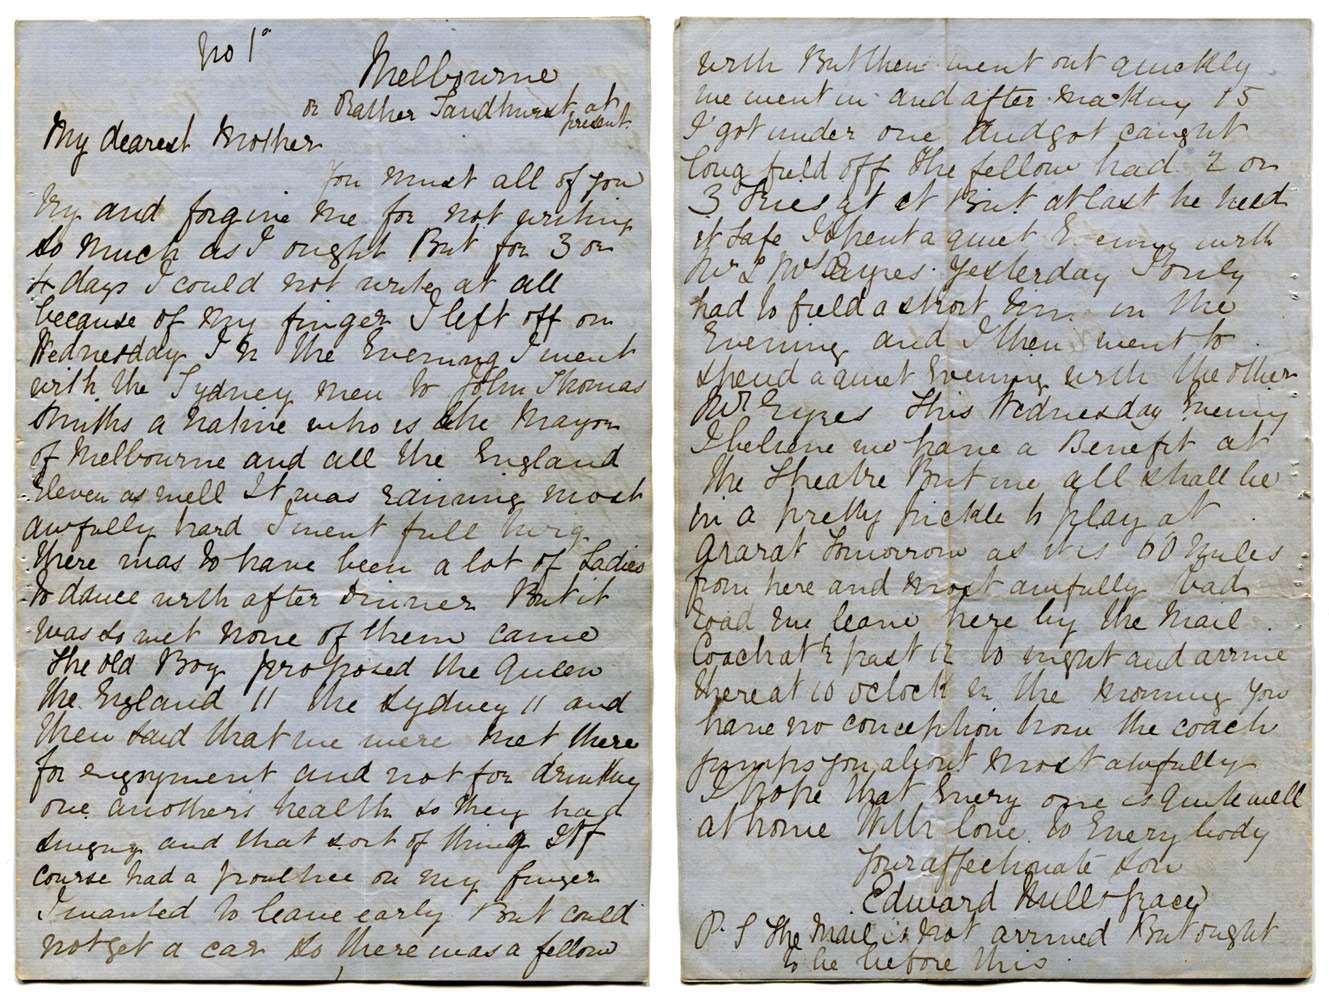 No 1°
Melbourne
or Rather Sandhurst at
present.
My dearest Mother
You must all of you
try and forgive me for not writing
so much as I ought But for 3 or
4 days I could not write at all
because of my finger I left off on
Wednesday In the Evening I went
with the Sydney men to John Thomas
Smiths a native who is the Mayor
of Melbourne and all the England
Eleven as well It was raining most
awfully hard I went full twig
there was to have been a lot of Ladies
to dance with after dinner But it
was so wet none of them came
The old Boy proposed the Queen
the England 11 the Sydney 11 and
then said that we were met there
for enjoyment and not for drinking
one anothers health so they had
singing and that sort of thing I of
course had a poultice on my finger
I wanted to leave early But could
not get a car So there was a fellow
with But then went out quickly
we went in and after making 15
I got under one and got caught
long field off the fellow had 2 or
3 tries at it But at last he held
it safe I spent a quiet Evening with
Mr & Mrs Eyres Yesterday I only
had to field a short time in the
Evening and I then went to
spend a quiet Evening with the other
Mr Eyres This Wednesday Evening
I believe we have a Benefit at
the Theatre But we all shall be
in a pretty pickle to play at
Ararat tomorrow as it is 60 Miles
from here and most awfully bad
road we leave here by the Mail
Coach at ½ past 12 to night and arrive
there at 10 oclock in the morning You
have no conception how the coach
jumps you about most awfully
I hope that Every one is quite well
at home With love to Every body
Your affectionate Son
Edward Mills Grace
P. S The Mail is not arrived But ought
to be before this